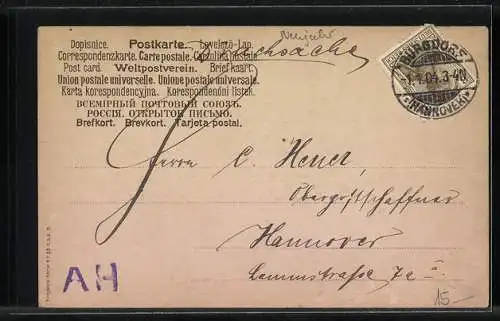 Neujahr
Drucksache
Dopisnice. Postkarte. Levelező-Lap.
Correspondenzkarte. Carte postale. Cartolina postale.
Post card Weltpostverein. Briefkaart.
Union postale universelle. Unione postale universale.
Karta korespondencyjna. Korespondenční listek.
ВСЕМІРНЫЙ ПОЧТОВЫЙ СОЮЗЪ.
РОССІЯ. ОТКРЫТОЕ ПИСЬМО.
Brefkort. Brevkort. Tarjeta postal.
BURGDORF
1.1.04. 3-4N
(HANNOVER)
Herrn C. Heuer,
Hannover
AH
15-